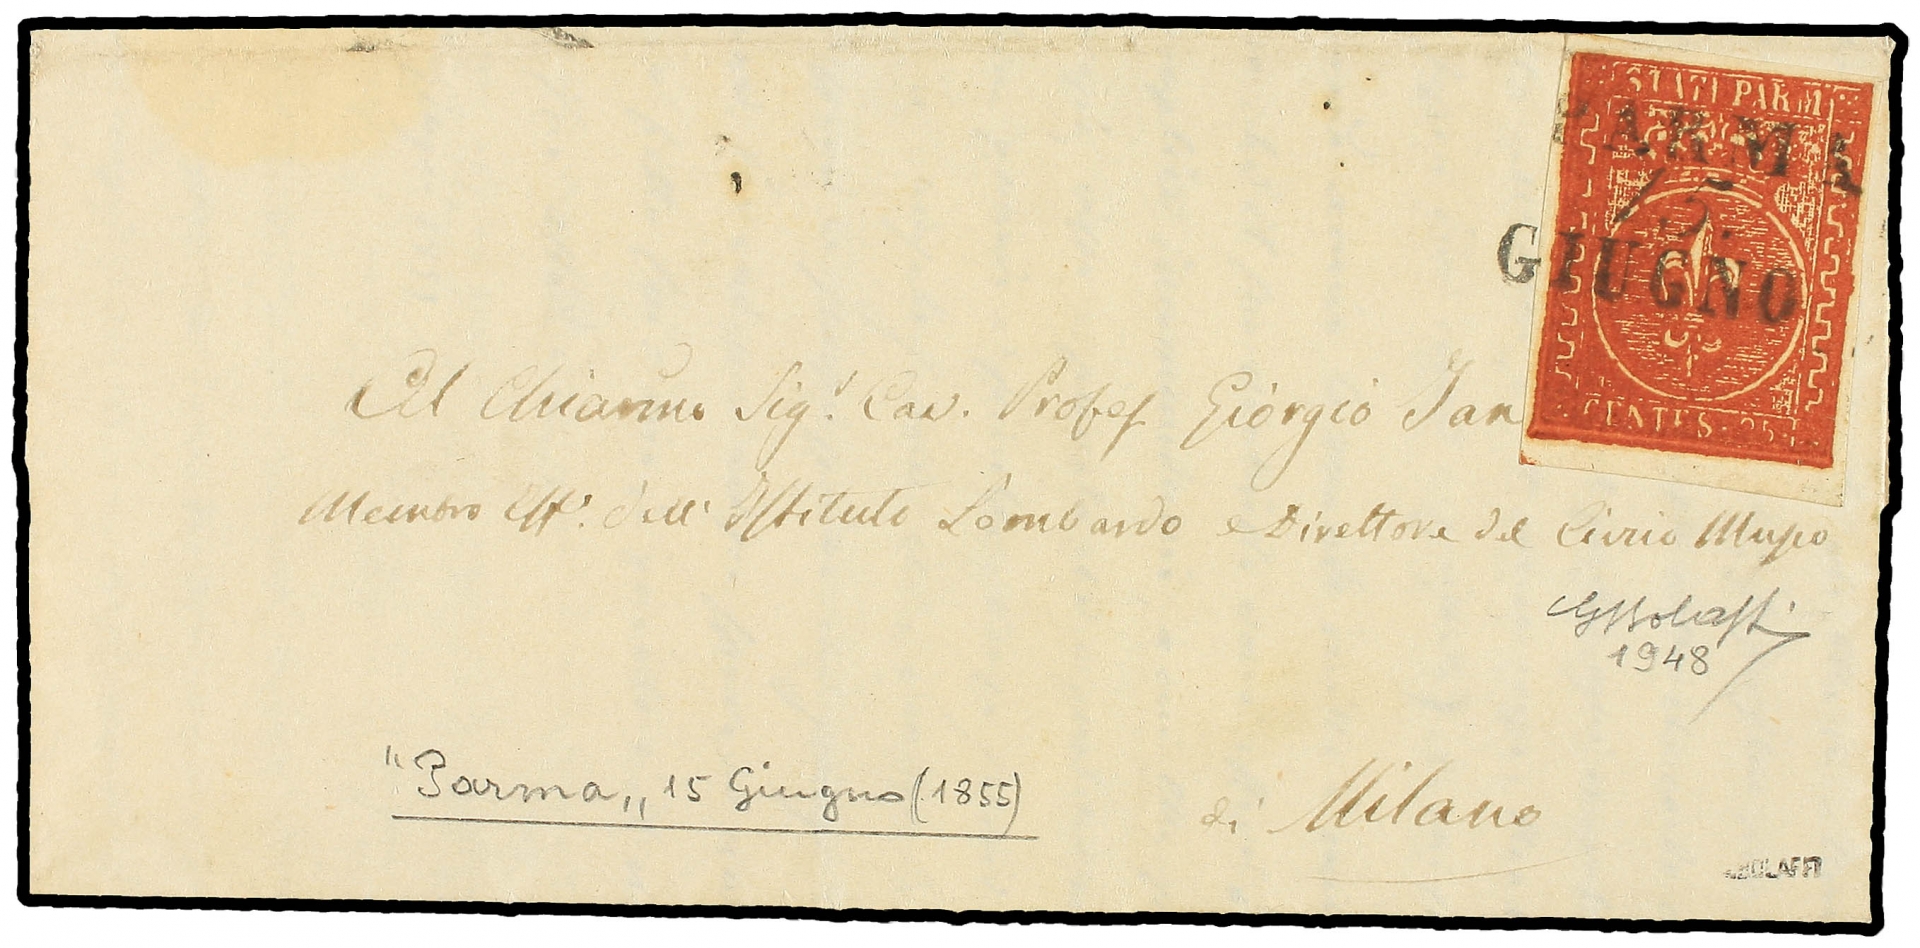 STATI PARM
PARMA
15.
GIUGNO
CENTES. 25
Al Chiarmo Sigr. Cav. Profess Giorgio Jan
Membro Eff. dell' Istituto Lombardo e Direttore del Civico Museo
GBolaffi
1948
"Parma„ 15 Giugno (1855)
di Milano
BOLAFFI